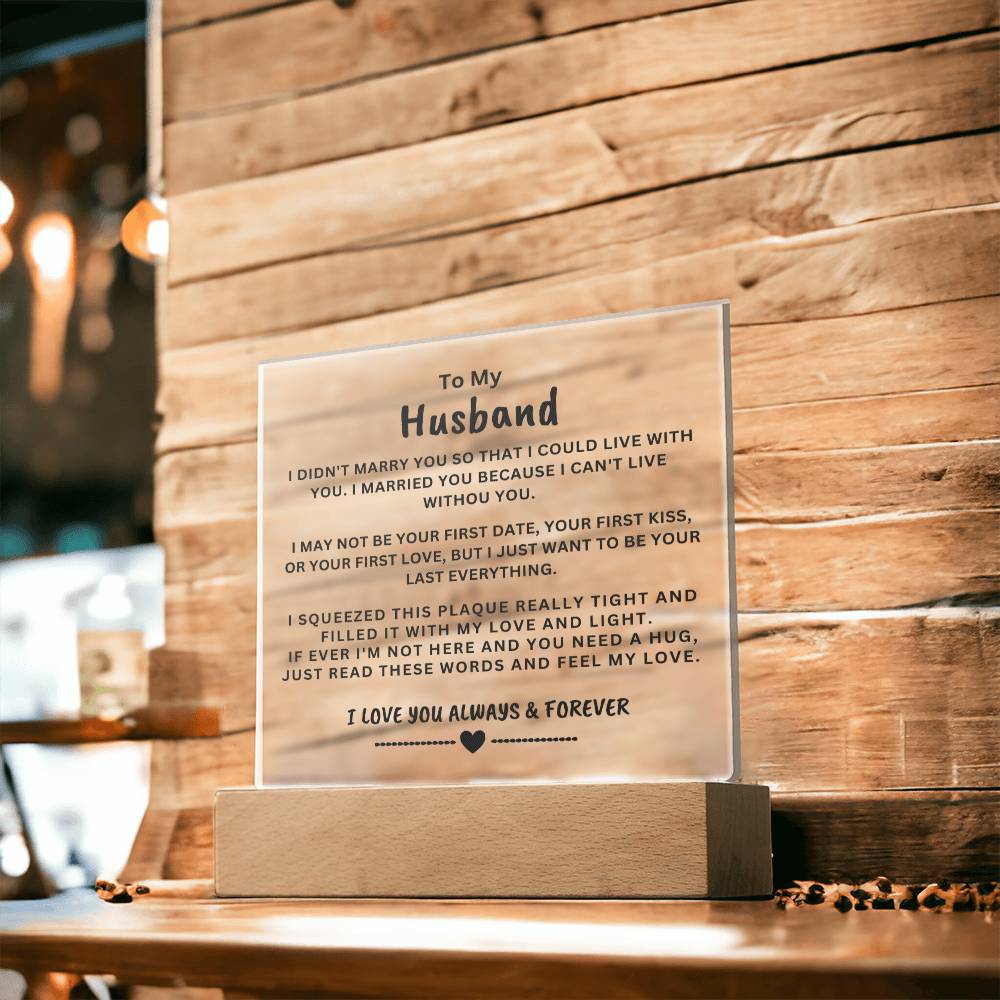 To My
Husband
I DIDN'T MARRY YOU SO THAT I COULD LIVE WITH
YOU. I MARRIED YOU BECAUSE I CAN'T LIVE
WITHOU YOU.
I MAY NOT BE YOUR FIRST DATE, YOUR FIRST KISS,
OR YOUR FIRST LOVE, BUT I JUST WANT TO BE YOUR
LAST EVERYTHING.
I SQUEEZED THIS PLAQUE REALLY TIGHT AND
FILLED IT WITH MY LOVE AND LIGHT.
IF EVER I'M NOT HERE AND YOU NEED A HUG,
JUST READ THESE WORDS AND FEEL MY LOVE.
I LOVE YOU ALWAYS & FOREVER